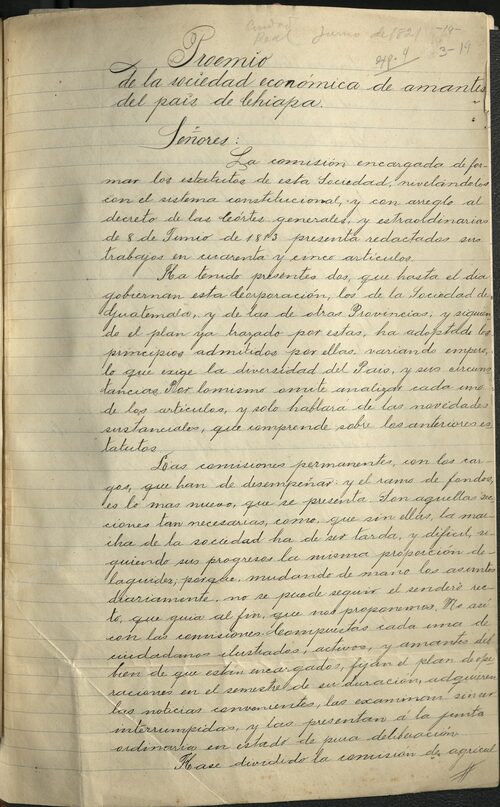 Ciudad Real Junio de 1821 -19-
3-19
Proemio
de la sociedad económica de amantes
del país de Chiapa.
Señores:
La comisión encargada de for-
mar los estatutos de esta Sociedad, nivelándolos
con el sistema constitucional, y con arreglo al
decreto de las Córtes generales, y estraordinarias
de 8 de Junio de 1813 presenta redactados sus
trabajos en cuarenta y cinco articulos.
Ha tenido presentes dos, que hasta el dia
gobiernan esta Corporación, los de la Sociedad de
Guatemala, y de las de otras Provincias, y siguien
do el plan ya trazado por estas, ha adoptado los
principios admitidos por ellas, variando empero,
lo que exige la diversidad del Pais, y sus circuns
tancias. Por lo mismo omite analizar cada uno
de los articulos, y solo hablará de las novedades
sustanciales, que comprende sobre los anteriores es
tatutos.
Las comisiones permanentes, con los car-
gos, que han de desempeñar y el ramo de fondos,
es lo mas nuevo, que se presenta. Son aquellas sec
ciones tan necesarias, como, que sin ellas, la mar
cha de la sociedad ha de ser tarda, y dificil, si-
guiendo sus progresos la misma proporción de
laguidez, porque, mudando de mano los asuntos
diariamente, no se puede seguir el sendero rec-
to, que guia al fin, que nos proponemos. No asi
con las comisiones. Compuestas cada una de
ciudadanos ilustrados, activos, y amantes del
bien de que están encargados, fijan el plan de ope
raciones en el semestre de su duración, adquieren
las noticias convenientes, las examinan sin ser
interrumpidas, y las presentan á la junta
ordinaria en estado de pura deliberación.
Hase dividido la comisión de agricul